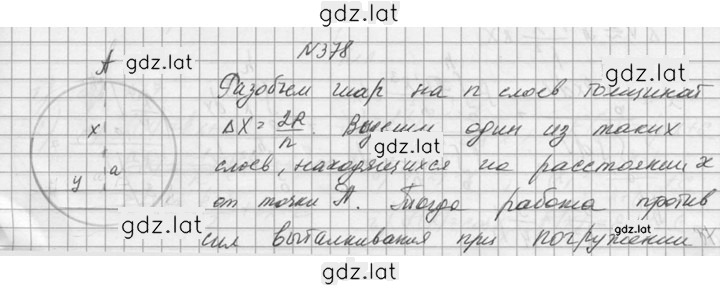 gdz.lat
gdz.lat
gdz.lat
N378
A
Разобьем шар на n слоев толщиной
x
ΔX = 2R/n. Вырежем один из таких
слоев, находящихся на расстоянии x
y a
gdz.lat
от точки A. Тогда работа против
gdz.lat
gdz.lat
сил выталкивания при погружении
gdz.lat